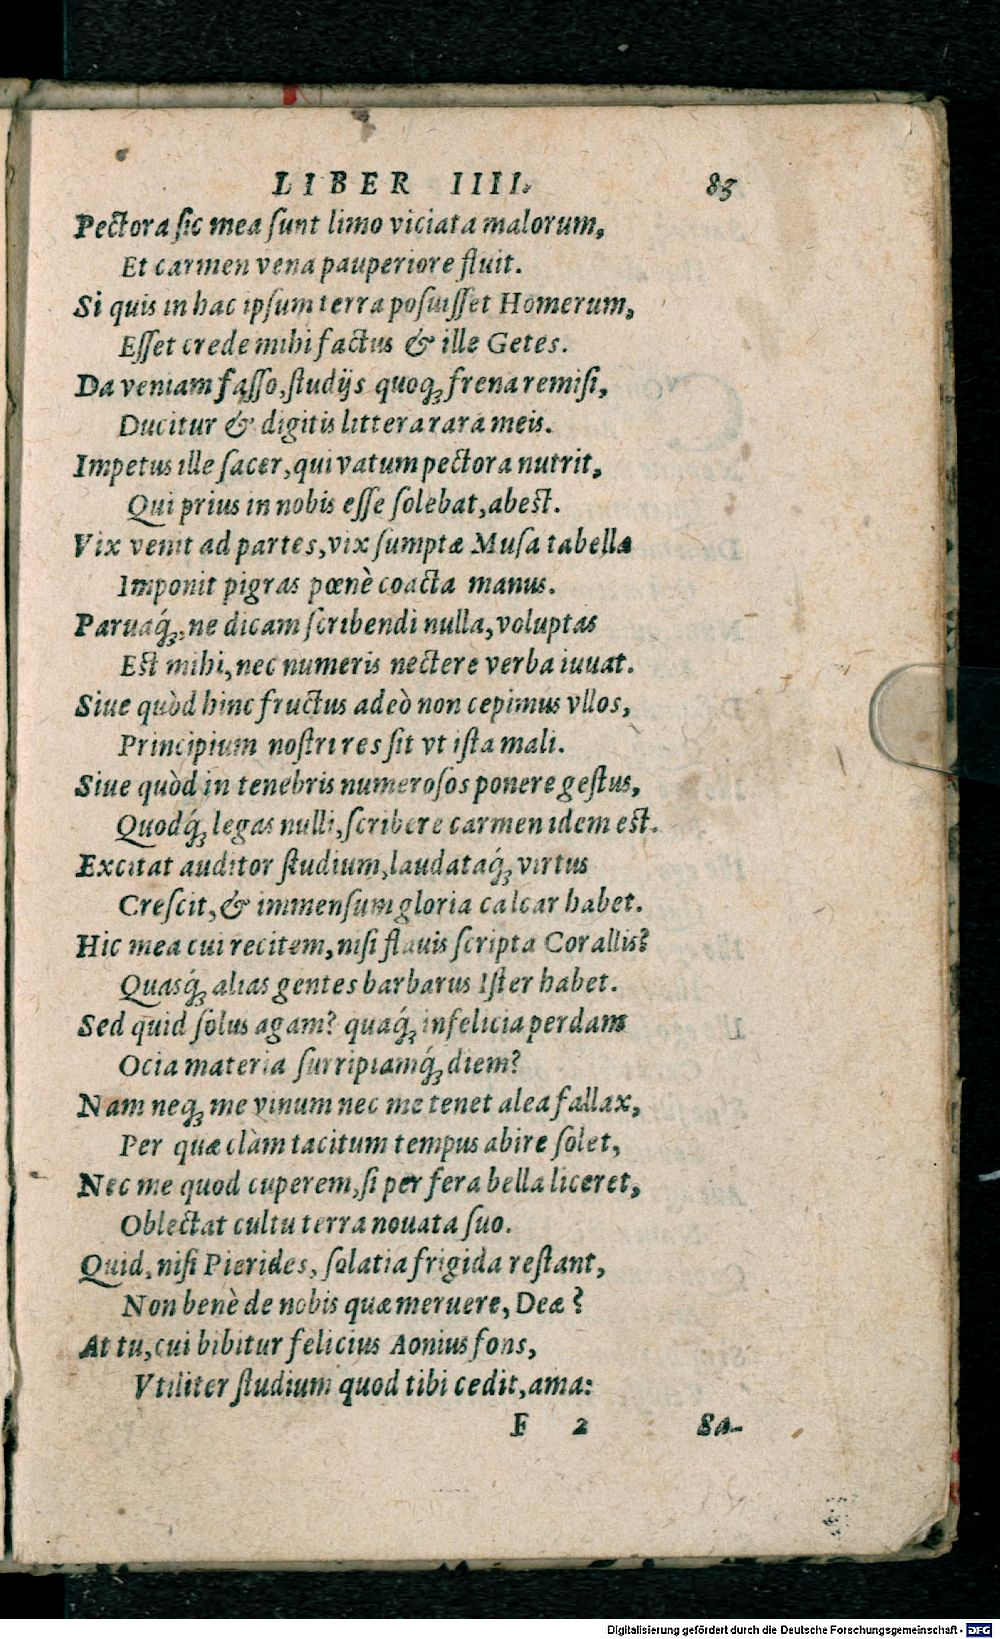 LIBER IIII. 83
Pectora ſic mea ſunt limo viciata malorum,
Et carmen vena pauperiore fluit.
Si quis in hac ipſum terra poſuiſſet Homerum,
Eſſet crede mihi factus & ille Getes.
Da veniam faſſo, ſtudijs quoqꝫ frena remiſi,
Ducitur & digitis littera rara meis.
Impetus ille ſacer, qui vatum pectora nutrit,
Qui prius in nobis eſſe ſolebat, abest.
Vix venit ad partes, vix ſumptæ Muſa tabellæ
Imponit pigras pœnè coacta manus.
Paruaq́ꝫ, ne dicam ſcribendi nulla, voluptas
Est mihi, nec numeris nectere verba iuuat.
Siue quòd hinc fructus adeò non cepimus vllos,
Principium noſtri res ſit vt iſta mali.
Siue quòd in tenebris numeroſos ponere geſtus,
Quodq́ꝫ legas nulli, ſcribere carmen idem est.
Excitat auditor ſtudium, laudataq́ꝫ virtus
Creſcit, & immenſum gloria calcar habet.
Hic mea cui recitem, niſi flauis ſcripta Corallis?
Quasq́ꝫ alias gentes barbarus Iſter habet.
Sed quid ſolus agam? quaq́ꝫ infelicia perdam
Ocia materia ſurripiamq́ꝫ diem?
Nam neqꝫ me vinum nec me tenet alea fallax,
Per quæ clàm tacitum tempus abire ſolet,
Nec me quod cuperem, ſi per fera bella liceret,
Oblectat cultu terra nouata ſuo.
Quid, niſi Pierides, ſolatia frigida reſtant,
Non benè de nobis quæ meruere, Deæ?
At tu, cui bibitur felicius Aonius fons,
Vtiliter ſtudium quod tibi cedit, ama:
F 2 Sa-
Digitalisierung gefördert durch die Deutsche Forschungsgemeinschaft - DFG